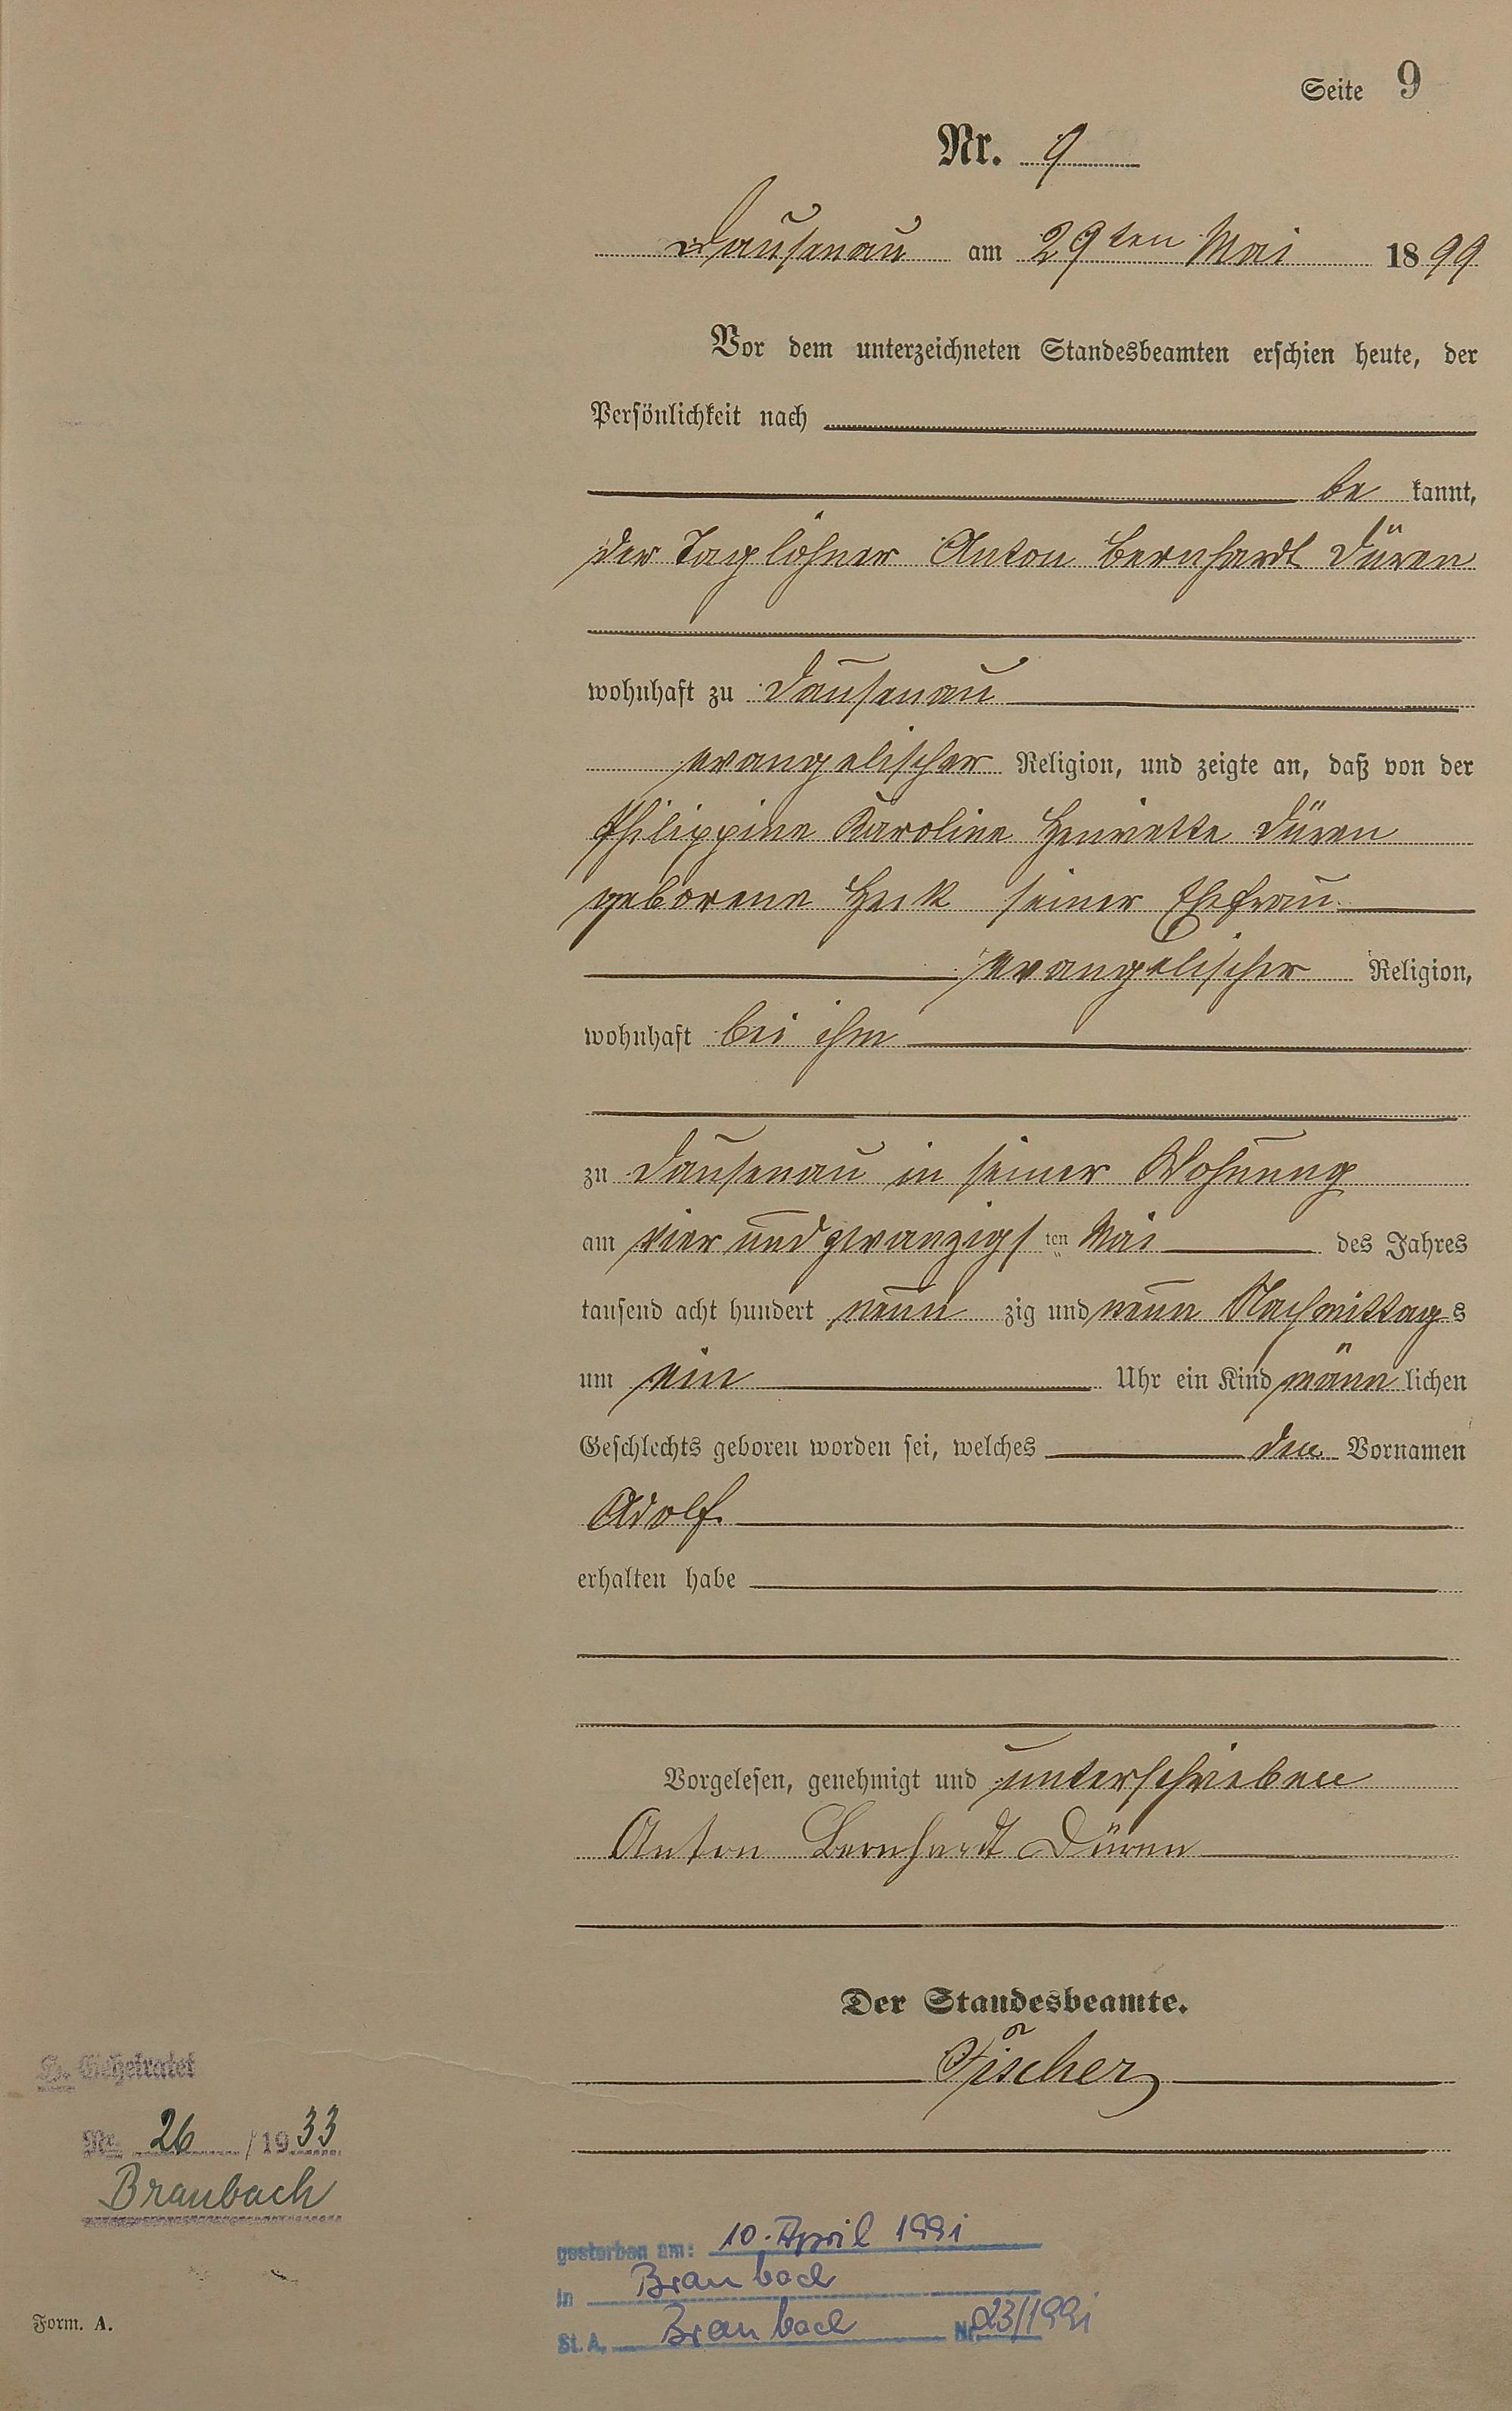 Seite 9
Nr. 9
Dausenau am 29ten Mai 1899
Vor dem unterzeichneten Standesbeamten erschien heute, der
Persönlichkeit nach
be kannt,
der Taglöhner Anton Bernhardt Düren
wohnhaft zu Dausenau
evangelischer Religion, und zeigte an, daß von der
Philippine Karoline Henriette Düren
geborene Heck seiner Ehefrau
evangelischer Religion,
wohnhaft bei ihm
zu Dausenau in seiner Wohnung
am vier und zwanzigsten Mai des Jahres
tausend acht hundert neun zig und neun Nachmittags
um ein Uhr ein Kind männlichen
Geschlechts geboren worden sei, welches den Vornamen
Adolf
erhalten habe
Vorgelesen, genehmigt und unterschrieben
Anton Bernhardt Düren
Der Standesbeamte.
Fischer
H. Geheiratet
Nr. 26 /1933
Braubach
gestorben am: 10. April 1991
in Braubach
St. A. Braubach Nr. 23/1991
Form. A.